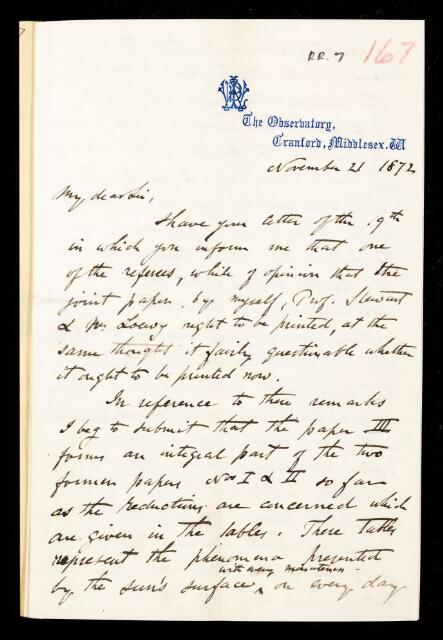 RR. 7 167
The Observatory,
Cranford, Middlesex. W
November 21 1872
My dear Sir,
I have your letter of the 9th
in which you inform me that one
of the referees, while of opinion that the
joint paper by myself, Prof. Stewart
& Mr Loewy ought to be printed, at the
same thought it fairly questionable whether
it ought to be printed now.
In reference to these remarks
I beg to submit that the paper III
forms an integral part of the two
former papers Nos I & II so far
as the reductions are concerned which
are given in the tables. These tables
represent the phenomena presented
with every minuteness
by the sun's surface, on every day